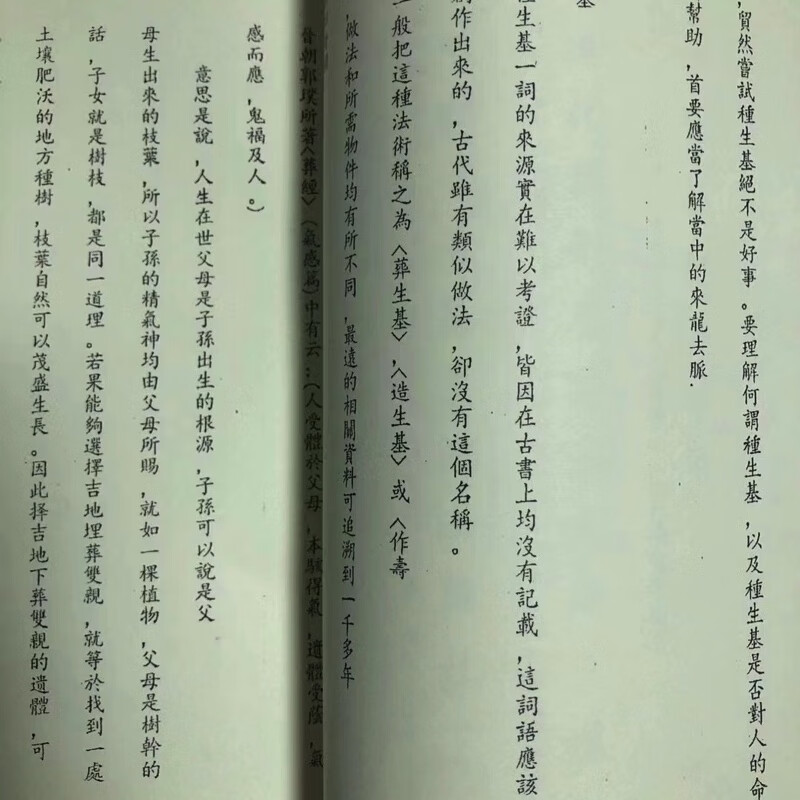 ,貿然嘗試種生基絕不是好事。要理解何謂種生基,以及種生基是否對人的命
幫助,首要應當了解當中的來龍去脈.
基
生基一詞的來源實在難以考證,皆因在古書上均沒有記載,這詞語應該
作出來的,古代雖有類似做法,卻沒有這個名稱。
般把這種法術稱之為〈葬生基〉,〈造生基〉或〈作壽
,做法和所需物件均有所不同,最遠的相關資料可追溯到一千多年
晉朝郭璞所著〈葬經〉〈氣感篇〉中有云:(人受體於父母,本骸得氣,遺體受蔭,氣
感而應,鬼福及人。)
意思是說,人生在世父母是子孫出生的根源,子孫可以說是父
母生出來的枝葉,所以子孫的精氣神均由父母所賜,就如一棵植物,父母是樹幹的
話,子女就是樹枝,都是同一道理。若果能夠選擇吉地埋葬雙親,就等於找到一處
土壤肥沃的地方種樹,枝葉自然可以茂盛生長。因此择吉地下葬雙親的遺體,可